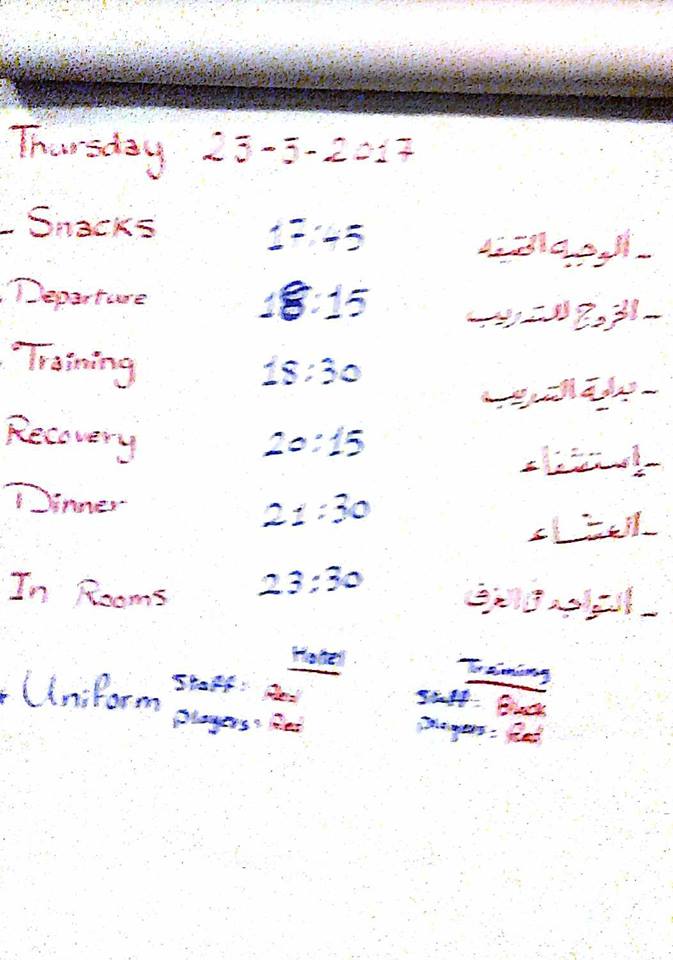 Thursday 23-3-2017
- Snacks 17:45 - الوجبه الخفيفه
- Departure 18:15 - الخروج للتدريب
- Training 18:30 - بداية التدريب
Recovery 20:15 - إستشفاء
Dinner 21:30 - العشاء
In Rooms 23:30 - التواجد في الغرف
Hotel Training
Uniform Staff: Red Staff: Black
Players: Red Players: Red